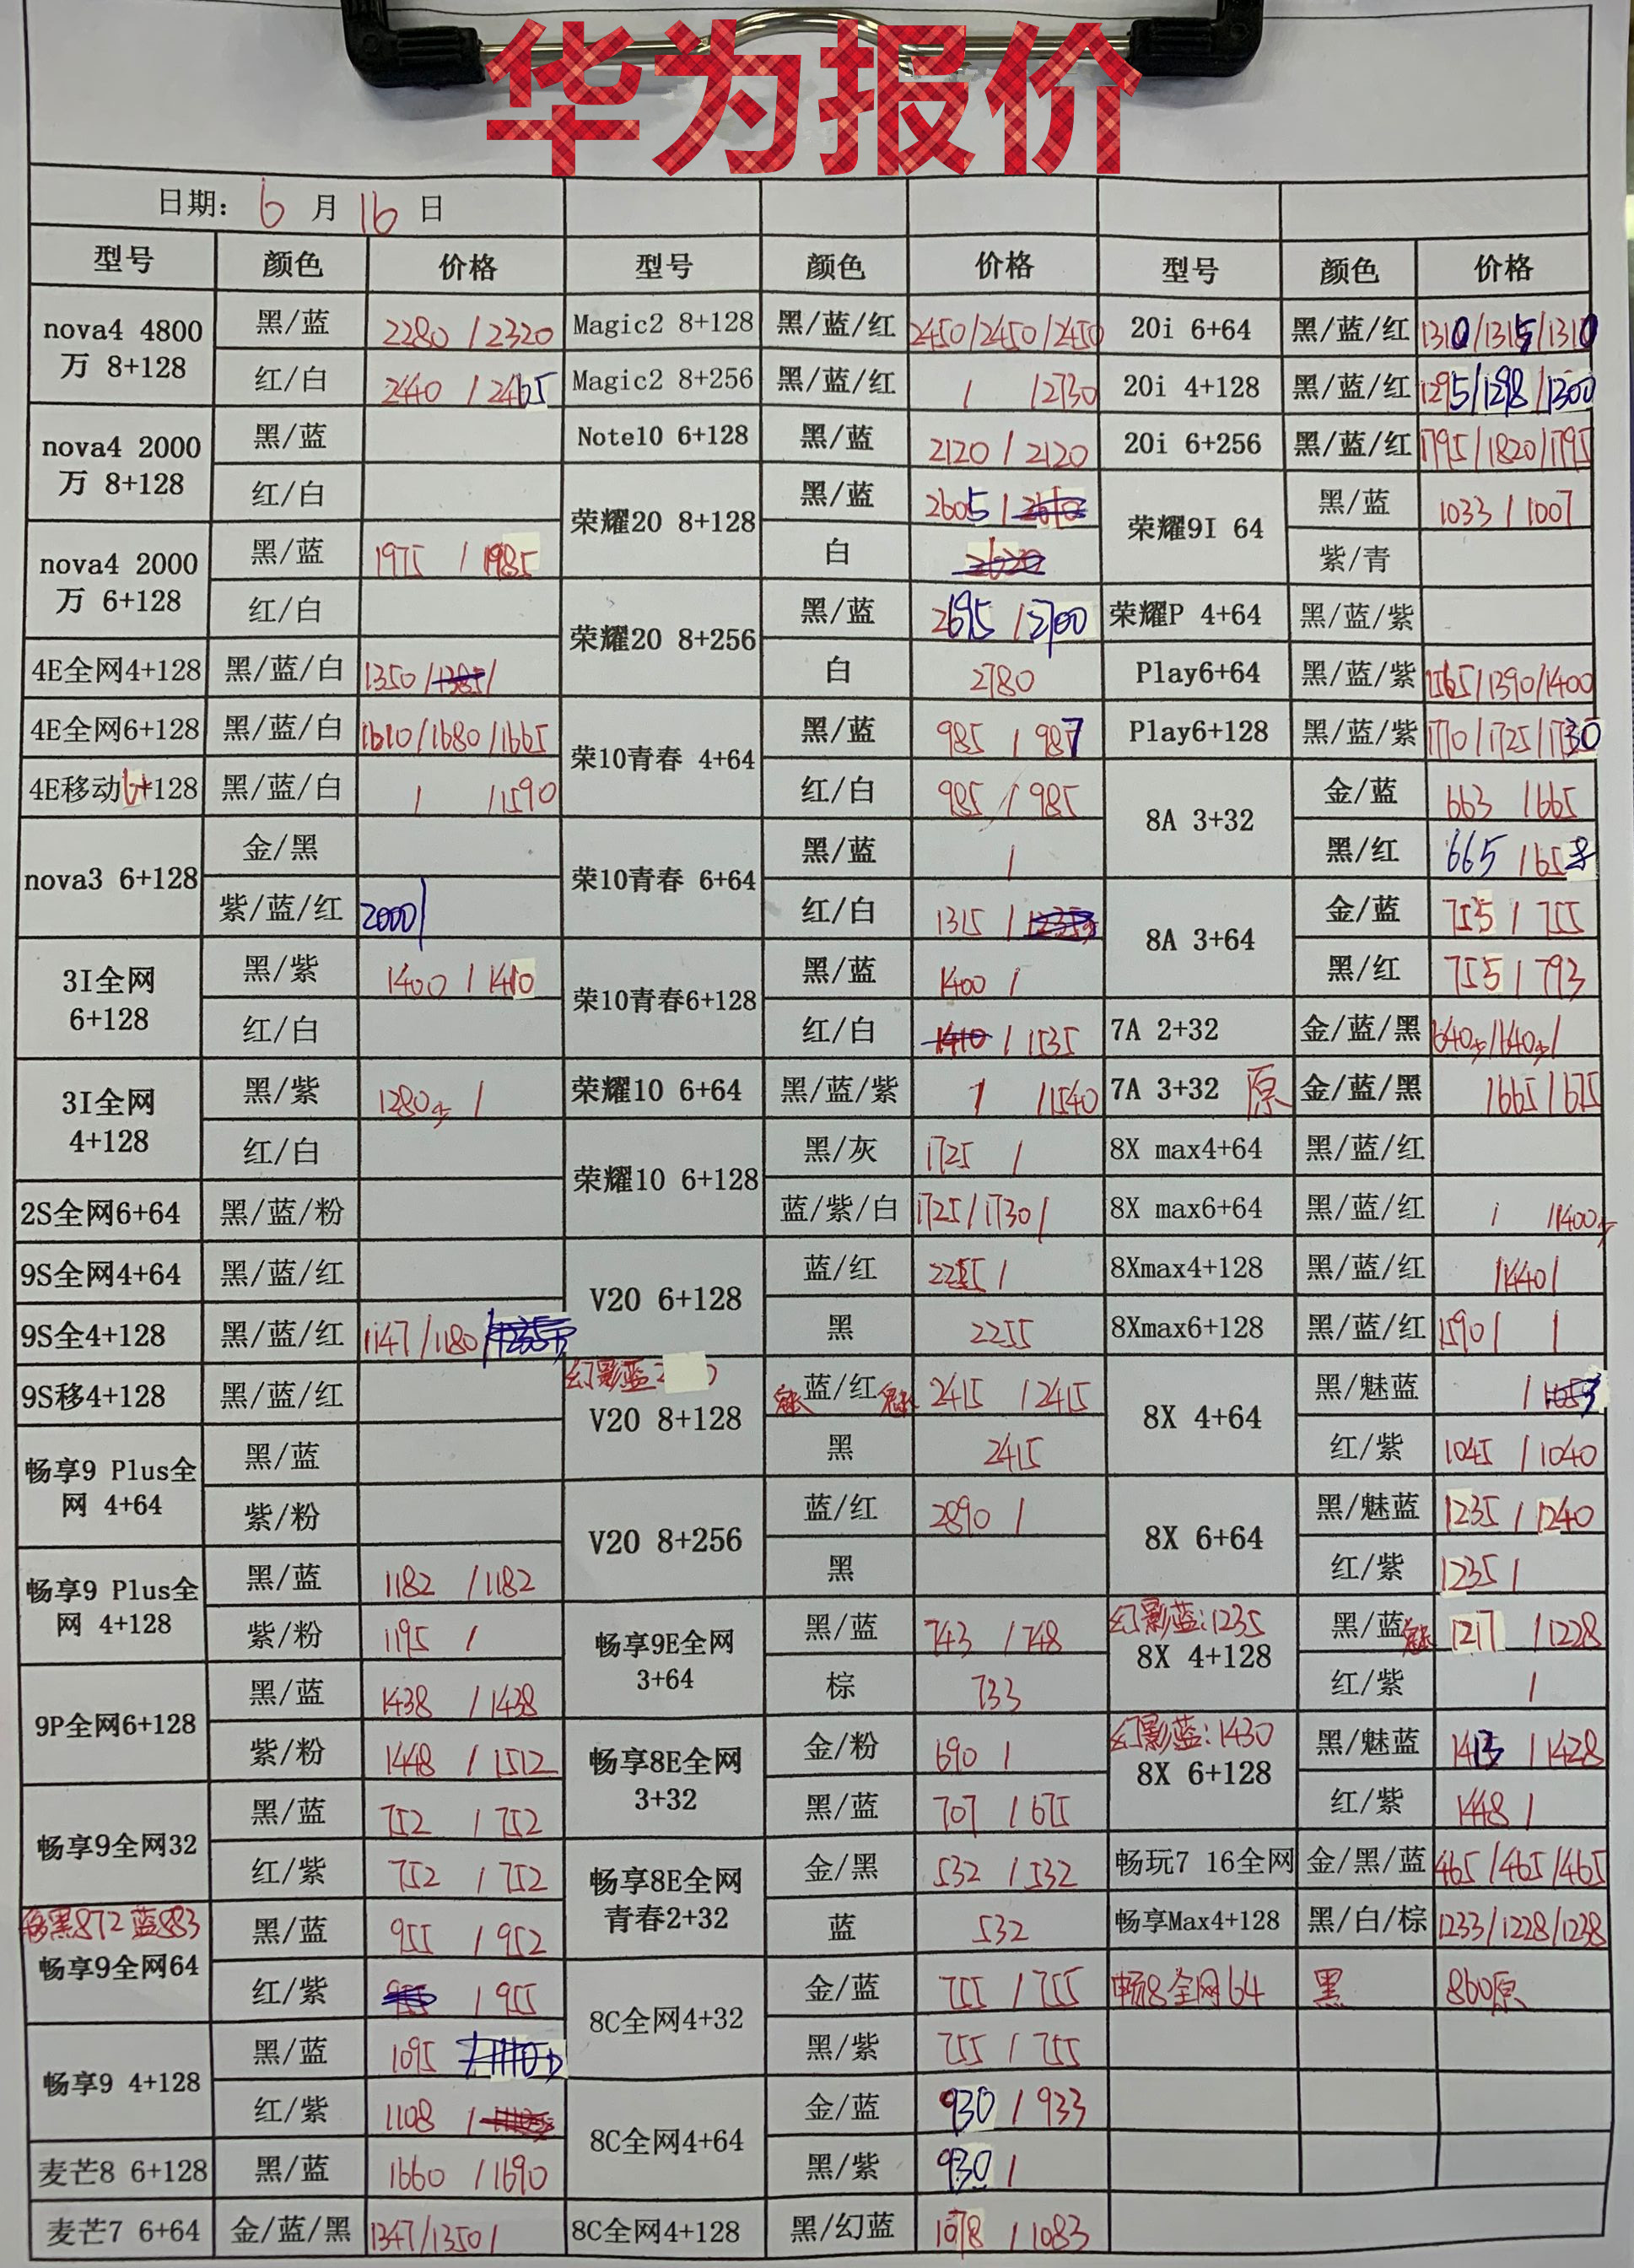 华为报价
日期: 6 月 16 日
型号 颜色 价格 型号 颜色 价格 型号 颜色 价格
nova4 4800万 8+128 黑/蓝 2280 / 2320 Magic2 8+128 黑/蓝/红 2450/2450/2450 20i 6+64 黑/蓝/红 1310/1315/1310
红/白 2440 / 2465 Magic2 8+256 黑/蓝/红 / /2730 20i 4+128 黑/蓝/红 1295/1298/1300
nova4 2000万 8+128 黑/蓝 Note10 6+128 黑/蓝 2120 / 2120 20i 6+256 黑/蓝/红 1795/1820/1795
红/白 荣耀20 8+128 黑/蓝 2605 / 荣耀9I 64 黑/蓝 1033 / 1007
nova4 2000万 6+128 黑/蓝 1975 / 1985 白 2620 紫/青
红/白 荣耀20 8+256 黑/蓝 2695 / 2700 荣耀P 4+64 黑/蓝/紫
4E全网4+128 黑/蓝/白 1350/1385/ 白 2780 Play6+64 黑/蓝/紫 1365/1390/1400
4E全网6+128 黑/蓝/白 1610/1680/1665 荣10青春 4+64 黑/蓝 985 / 987 Play6+128 黑/蓝/紫 1710/1725/1730
4E移动6+128 黑/蓝/白 / /1590 红/白 985 / 985 8A 3+32 金/蓝 663 / 665
nova3 6+128 金/黑 荣10青春 6+64 黑/蓝 / 黑/红 665 / 658
紫/蓝/红 2000/ 红/白 1315 / 8A 3+64 金/蓝 755 / 755
3I全网 6+128 黑/紫 1400 / 1410 荣10青春6+128 黑/蓝 1400 / 黑/红 755 / 793
红/白 红/白 1410 / 1535 7A 2+32 金/蓝/黑 640少/640少/
3I全网 4+128 黑/紫 1280少 / 荣耀10 6+64 黑/蓝/紫 / /1540 7A 3+32 原 金/蓝/黑 /665/675
红/白 荣耀10 6+128 黑/灰 1725 / 8X max4+64 黑/蓝/红
2S全网6+64 黑/蓝/粉 蓝/紫/白 1725/1730/ 8X max6+64 黑/蓝/红 / /1400少
9S全网4+64 黑/蓝/红 V20 6+128 蓝/红 2255 / 8Xmax4+128 黑/蓝/红 /1440/
9S全4+128 黑/蓝/红 1147/1180/1235 黑 2255 8Xmax6+128 黑/蓝/红 1590/ /
9S移4+128 黑/蓝/红 幻影蓝 V20 8+128 蓝/红 2415 / 2415 8X 4+64 黑/魅蓝 / 1053
畅享9 Plus全网 4+64 黑/蓝 黑 2415 红/紫 1045 / 1040
紫/粉 V20 8+256 蓝/红 2890 / 8X 6+64 黑/魅蓝 1235 / 1240
畅享9 Plus全网 4+128 黑/蓝 1182 / 1182 黑 红/紫 1235 /
紫/粉 1195 / 畅享9E全网 3+64 黑/蓝 743 / 748 幻影蓝:1235 8X 4+128 黑/蓝 1217 / 1228
9P全网6+128 黑/蓝 1438 / 1438 棕 733 红/紫 /
紫/粉 1448 / 1512 畅享8E全网 3+32 金/粉 690 / 幻影蓝:1430 8X 6+128 黑/魅蓝 1413 / 1428
畅享9全网32 黑/蓝 752 / 752 黑/蓝 707 / 675 红/紫 1448 /
红/紫 752 / 752 畅享8E全网 青春2+32 金/黑 532 / 532 畅玩7 16全网 金/黑/蓝 465/465/465
黑872 蓝883 畅享9全网64 黑/蓝 955 / 952 蓝 532 畅享Max4+128 黑/白/棕 1233/1228/1238
红/紫 955 / 955 8C全网4+32 金/蓝 755 / 755 畅8全网64 黑 860原
畅享9 4+128 黑/蓝 1095 / 黑/紫 755 / 755
红/紫 1108 / 8C全网4+64 金/蓝 930 / 933
麦芒8 6+128 黑/蓝 1660 / 1690 黑/紫 930 /
麦芒7 6+64 金/蓝/黑 1347/1350/ 8C全网4+128 黑/幻蓝 1078 / 1083